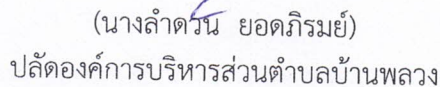 (นางลำดวน ยอดภิรมย์)
ปลัดองค์การบริหารส่วนตำบลบ้านพลวง